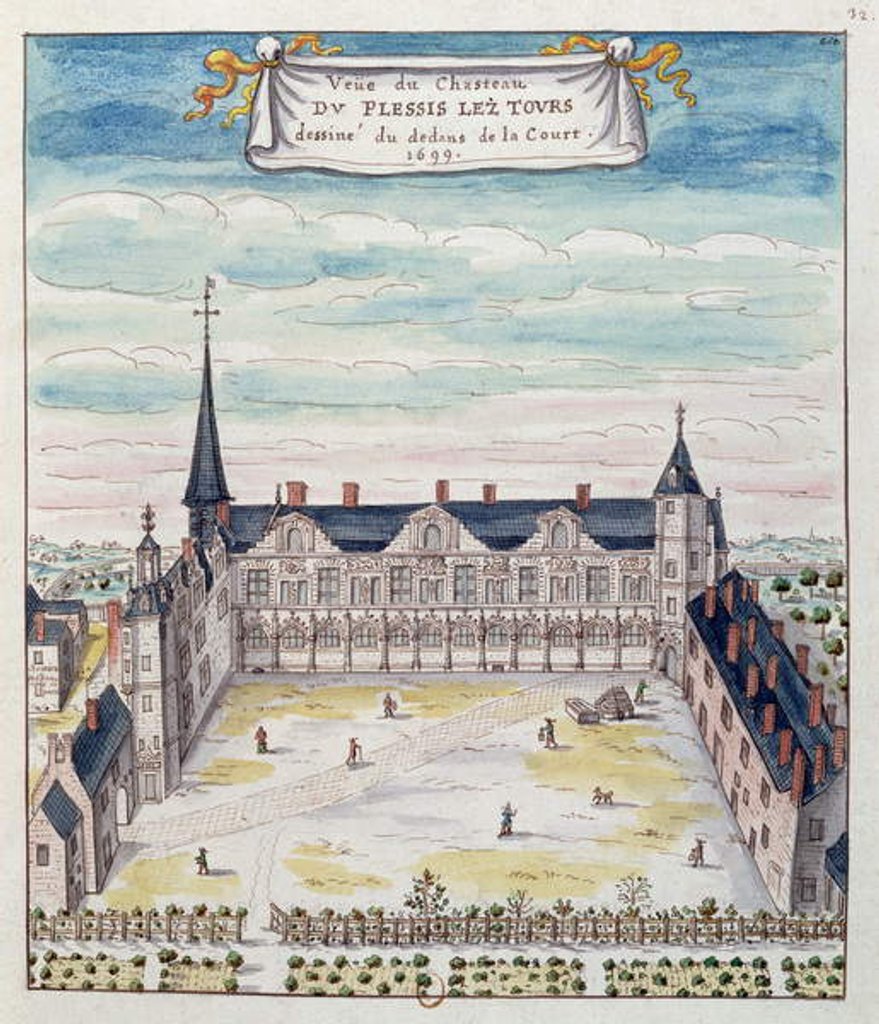 32.
Veüe du Chasteau
DV PLESSIS LEŻ TOVRS
dessiné du dedans de la Court.
1699.